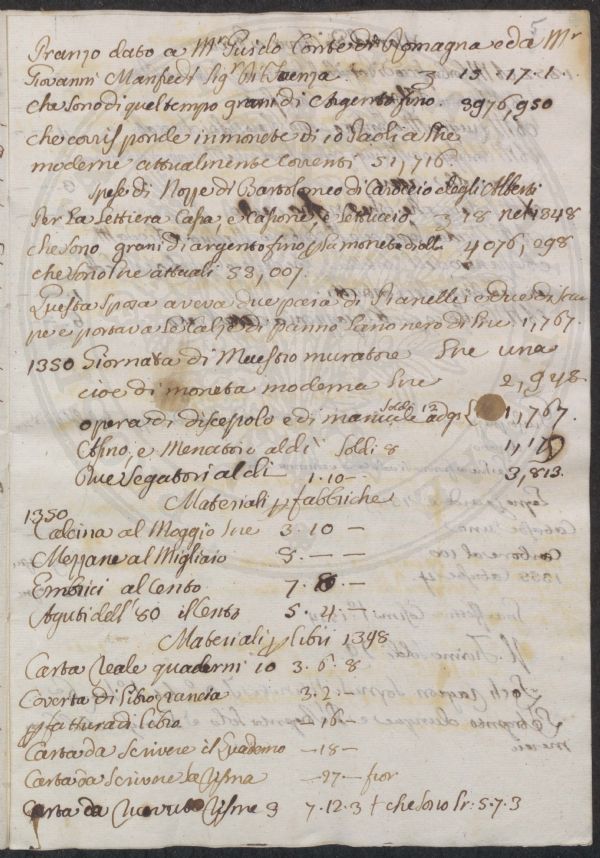 5
Pranzo dato a Mr Guido Conte di Romagna e da Mr
Giovanni Manfredi Sigr di Faenza 3 15. 17. 1.
che sono di quel tempo grani di Argento fino. 3976,950
che corrisponde in monete di 10 Paoli a Lire
moderne attualmente correnti 51,716.
spese di Nozze di Bartolomeo di Caroccio degli Alberti
Per La Lettiera Cassa, e Cassone, e Lettuccio, 78 nel 1348
che sono grani di argento fino p la moneta di 4076,298
che sono Lire attuali 53,007.
Questa sposa aveva due paia di Pianelle, e due di scar
pe e portava le calze di panno Lano nero di Lire. 1,767.
1350 Giornata di Maestro muratore Lire una
cioè di moneta moderna Lire 2,948
opera di discepolo e di manuale soldi 12 1,767.
Asino, e Menatore al dì Soldi 8 1,17
Due segatori al dì 1.10 - 3,813.
Materiali p fabbriche
1350
Calcina al Moggio Lire 3. 10 -
Mezzane al Migliaio 8. - -
Embrici al Cento 7. 8. -
Aguti dell' 80 il Cento 5. 4. +
Materiali p libri 1398
Carta Reale quaderni 10 3. 6. 8
Coverta di Libro grancia 3. 2. -
p fattura di Libro - 16 -
Carta da Scrivere il Quaderno - 18 -
Carta da Scrivere la Risma - 27. - fior
Carta da Risme 3 7. 12. 3 + che sono Fr: 5. 7. 3